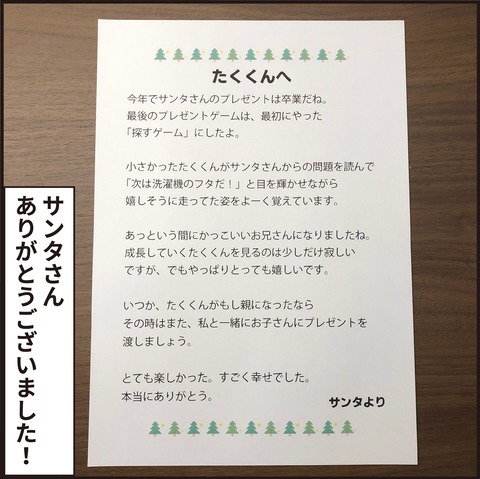 たくくんへ
今年でサンタさんのプレゼントは卒業だね。
最後のプレゼントゲームは、最初にやった
「探すゲーム」にしたよ。
小さかったたくくんがサンタさんからの問題を読んで
「次は洗濯機のフタだ！」と目を輝かせながら
嬉しそうに走ってた姿をよーく覚えています。
あっという間にかっこいいお兄さんになりましたね。
成長していくたくくんを見るのは少しだけ寂しい
ですが、でもやっぱりとっても嬉しいです。
いつか、たくくんがもし親になったなら
その時はまた、私と一緒にお子さんにプレゼントを
渡しましょう。
とても楽しかった。すごく幸せでした。
本当にありがとう。
サンタより
サンタさん
ありがとうございました！